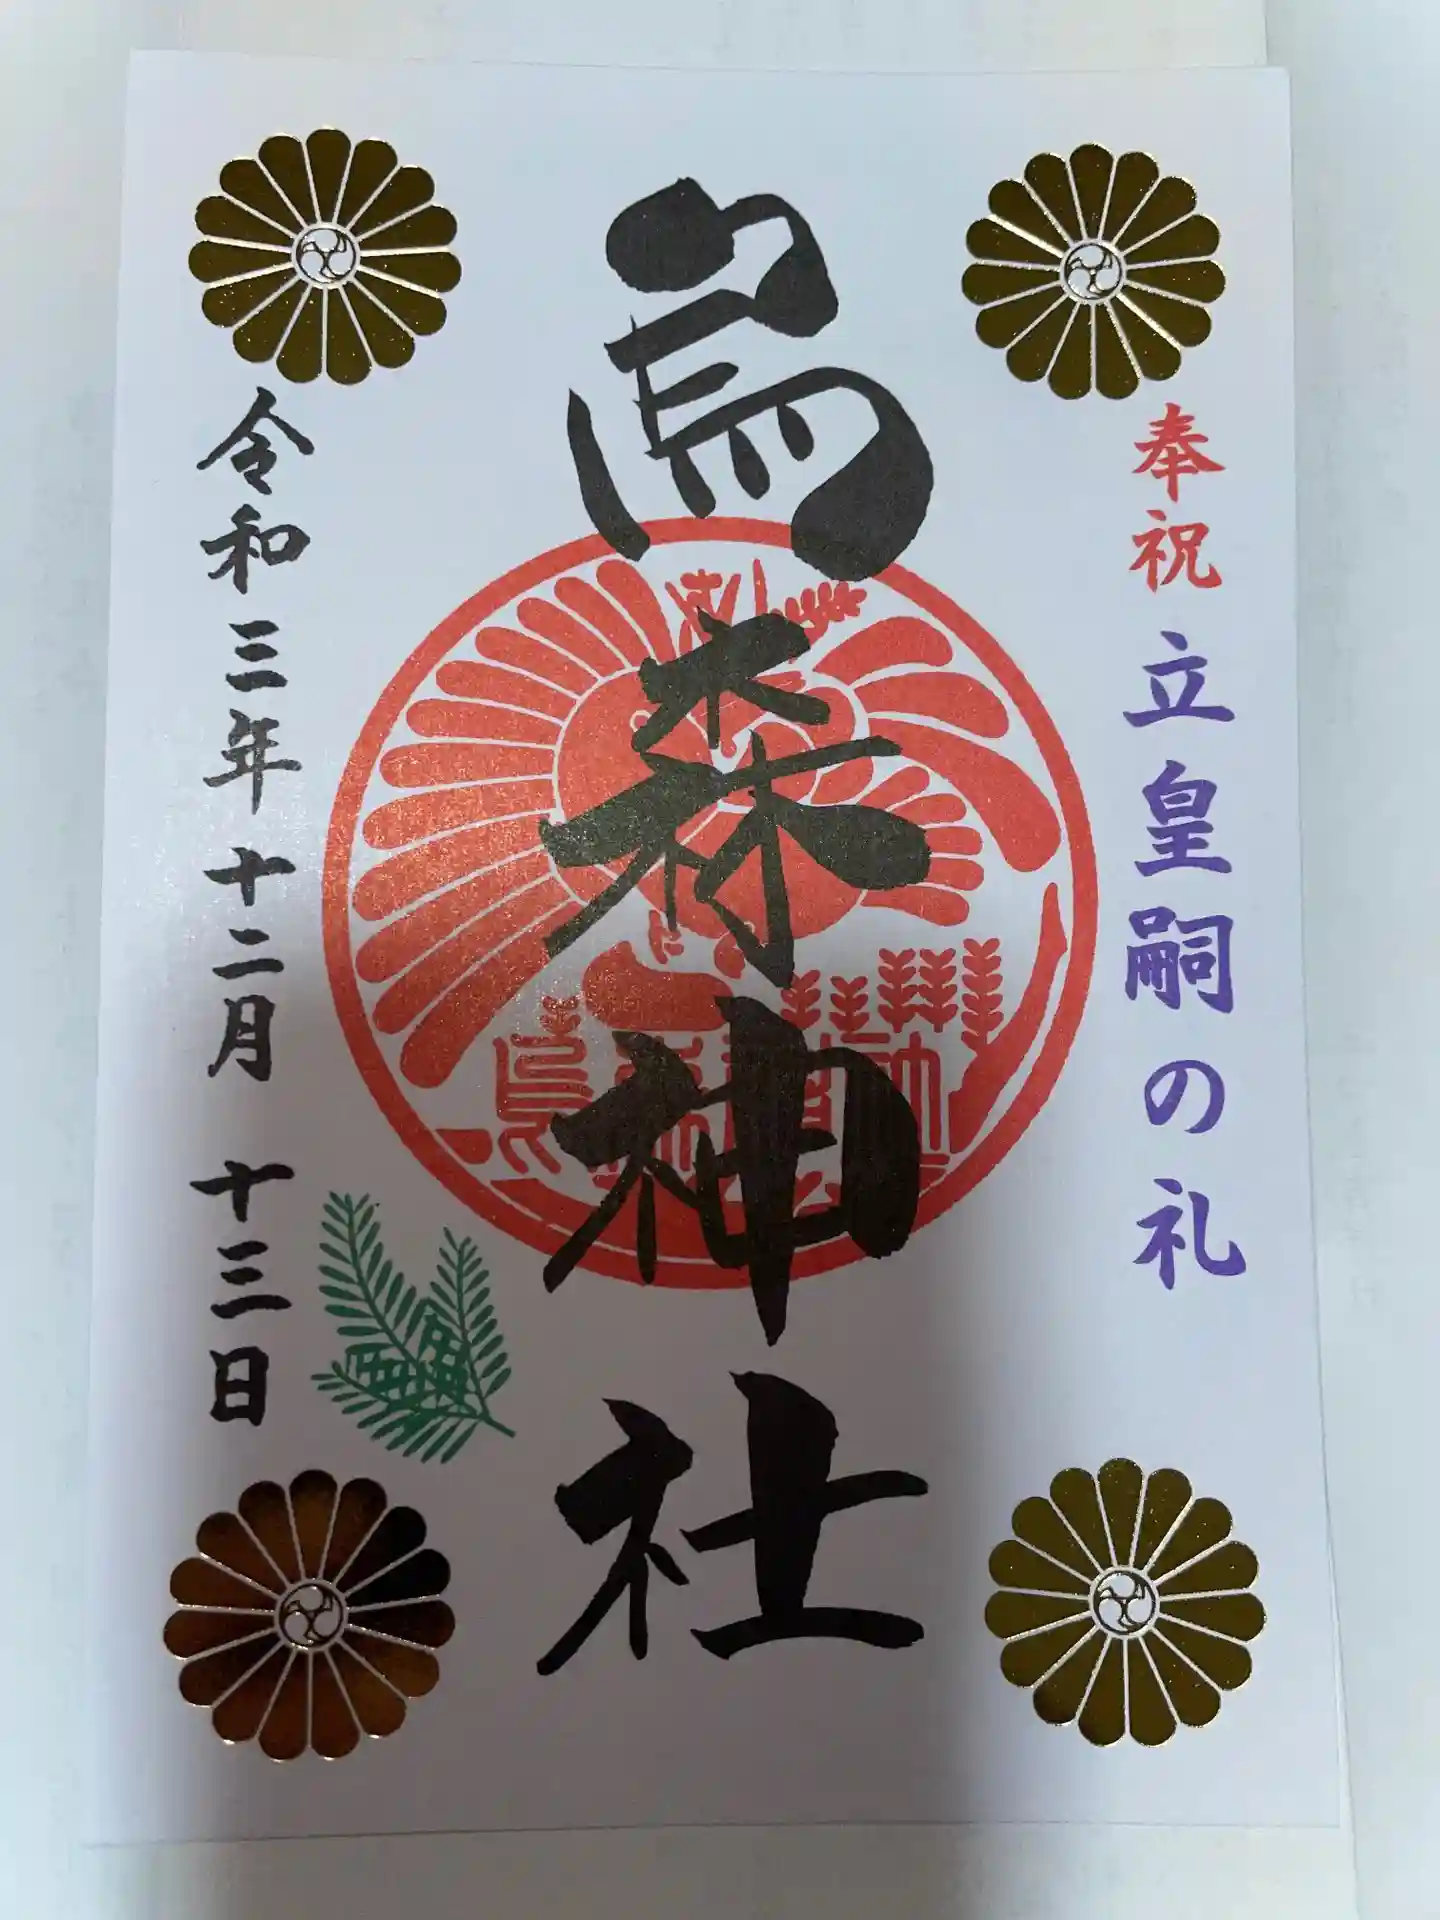 奉祝 立皇嗣の礼
烏森神社
令和三年 十二月 十三日